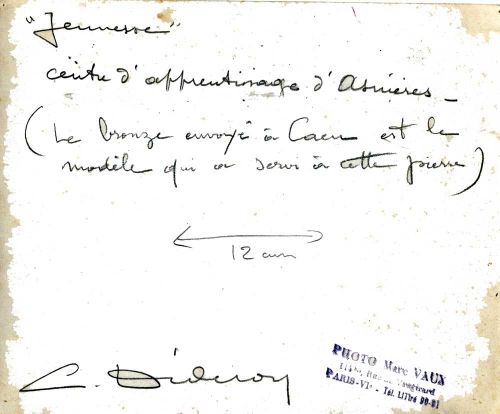 "Jeunesse"
centre d'apprentissage d'Asnières_
(Le bronze envoyé à Caen est le
modèle qui a servi à cette pierre)
12 cm
C. Dideron
PHOTO Marc VAUX
Rue de Vaugirard
PARIS-VIe - Tél. LITtré